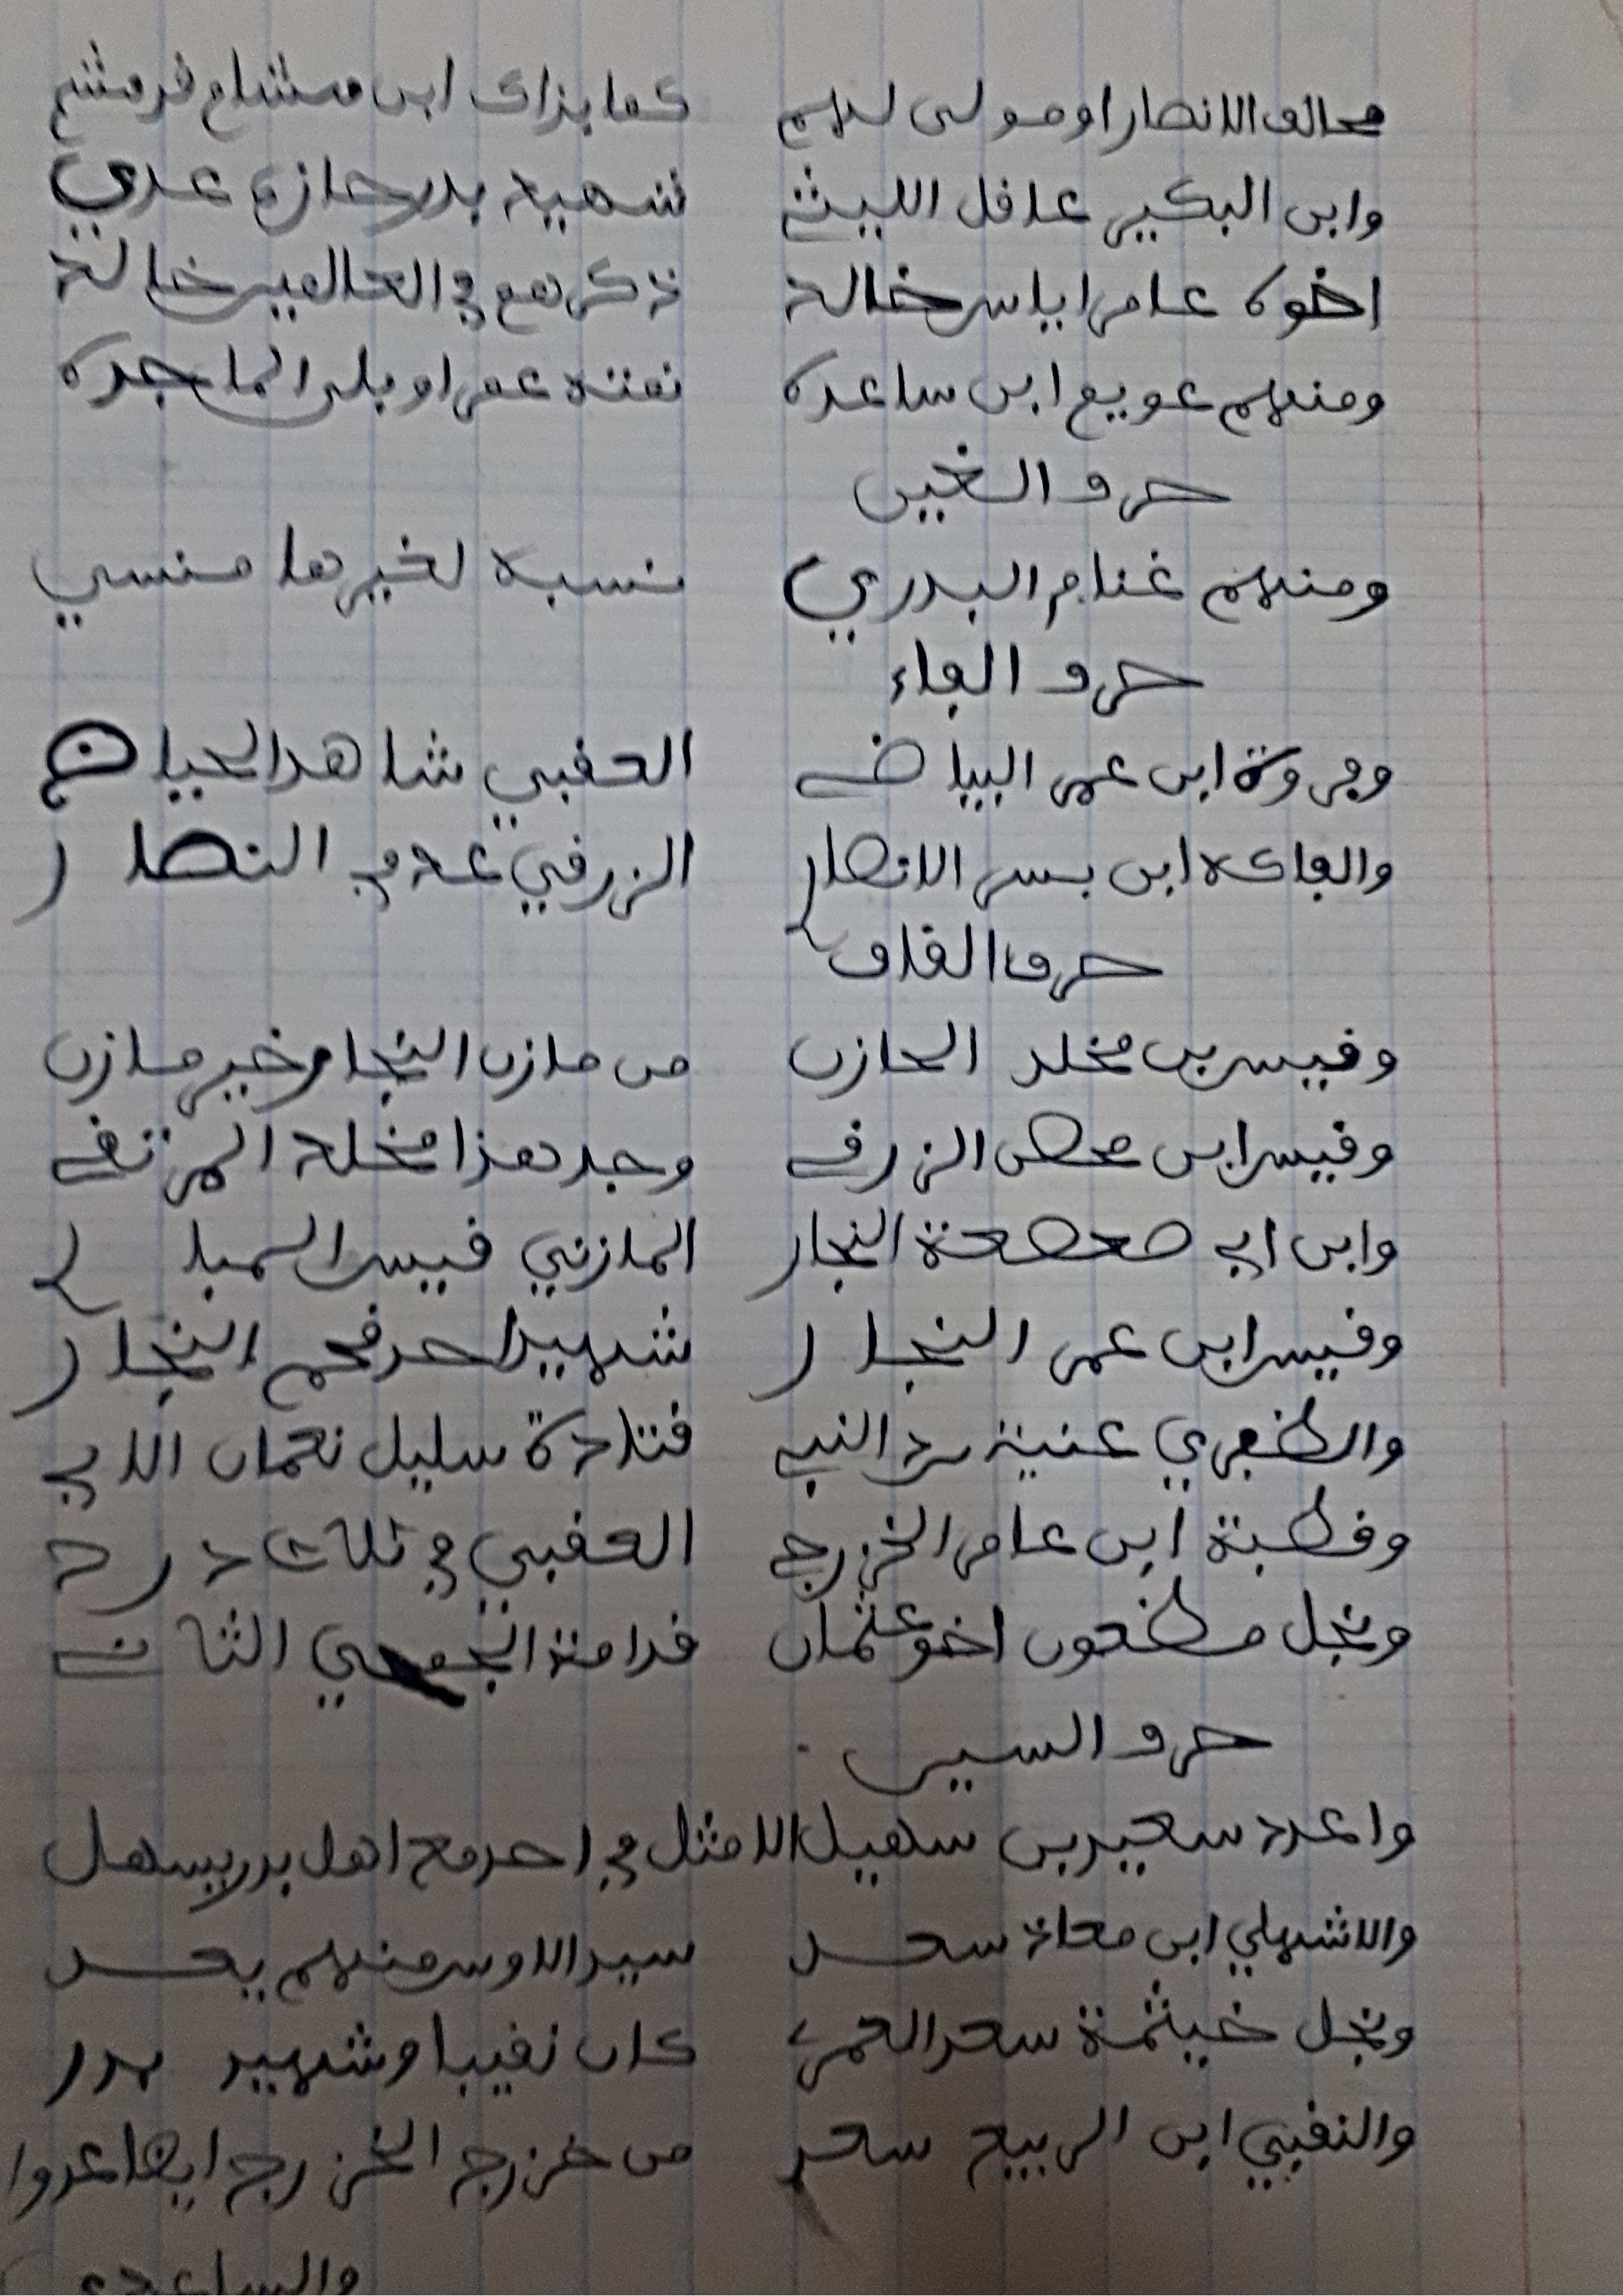 محالف الانصار او مولى لهم كما بذاك ابن هشام قد
وابن البكير عاقل الليث شهيد بدر حازه عدي
اخوه عامر اياس خالد ذكرهم في العالمين خالد
ومنهم عويم ابن ساعده نمته عمرو بلى الماجده
حرف الغين
ومنهم غنام البدري نسبة لغيرها منسي
حرف الفاء
وفروة ابن عمر البياض العقبي شاهد الحياض
والفاكه ابن بسر الانصار الزرقي عد في النصار
حرف القاف
وقيس بن مخلد الحازن من مازن النجار خير مازن
وقيس ابن محصن الزرقي وجد هذا مخلد المرتقي
وابن ابي صعصعة النجار المازني قيس السمبار
وقيس ابن عمر النجار شهيد احد فحم النجار
والظفري عنيته رد النبي قتادة سليل نعمان الابي
وقطبة ابن عامر الخزرجي العقبي في ثلاث درج
ونجل مظعون اخو عثمان قدامة الجمحي الثاني
حرف السين
واعدد سعيد بن سهيل الامثل في احد مع اهل بدر يسهل
والاشهلي ابن معاذ سعد سيد الاوس منهم يعد
ونجل خيثمة سعد العمري كان نقيبا وشهيد بدر
والنقيبي ابن الربيع سعد من خزرج الخزرج ايضا عدوا
والساعدي